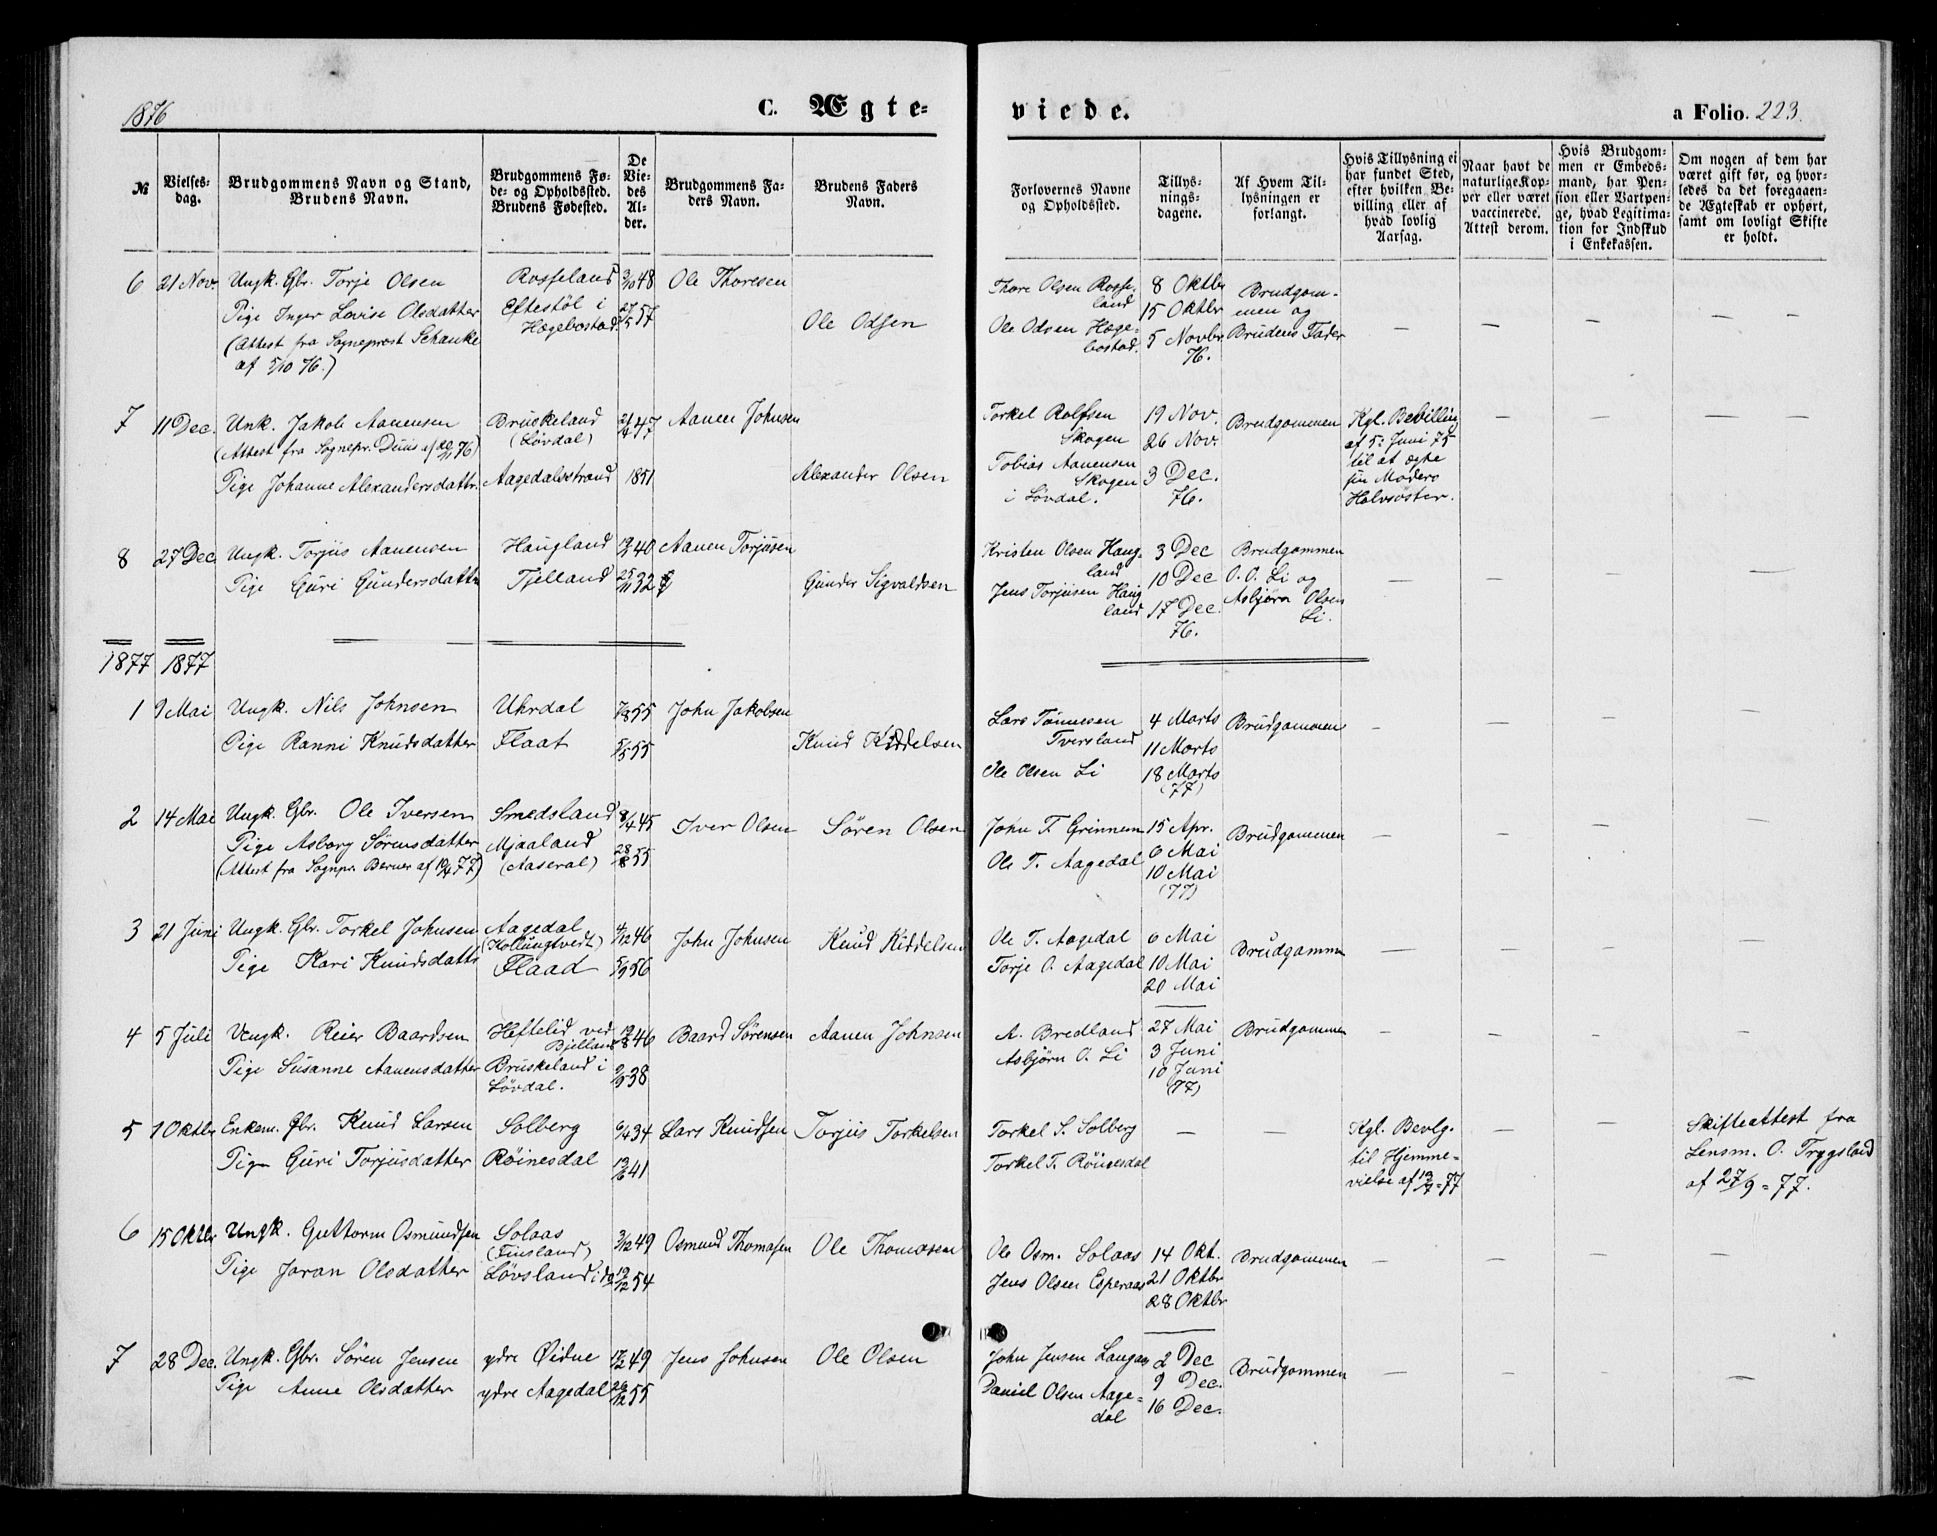 1876
C. Ægte=
viede.
a Folio. 223.
№
Vielses-
dag.
Brudgommens Navn og Stand,
Brudens Navn.
Brudgommens Fø-
de- og Opholdssted.
Brudens Fødested.
De
Vie-
des
Al-
der.
Brudgommens Fa-
ders Navn.
Brudens Faders
Navn.
Forlovernes Navne
og Opholdssted.
Tillys-
nings-
dagene.
Af Hvem Til-
lysningen er
forlangt.
Hvis Tillysning ei
har fundet Sted,
efter hvilken Be-
villing eller af
hvad lovlig
Aarsag.
Naar havt de
naturlige Kop-
per eller været
vaccinerede.
Attest derom.
Hvis Brudgom-
men er Embeds-
mand, har Pen-
sion eller Vartpen-
ge, hvad Legitima-
tion for Indskud
i Enkekassen.
Om nogen af dem har
været gift før, og hvor-
ledes da det foregaaen-
de Ægteskab er ophørt,
samt om lovligt Skifte
er holdt.
6 21 Nov. Ungk. Gbr. Torje Olsen Rosseland 48 Ole Thoresen
Pige Inger Lovise Olsdatter Eftestöl i Hægebostad. 27/5 57 Ole Odsen
(Attest fra Sogneprest Schanke
af 5/10 76.)
Thore Olsen Rosse-
land
Ole Odsen Hæge-
bostad.
8 Oktbr
15 Oktbr
5 Novbr
76.
Brudgom-
men og
Brudens Fader
— — — — —
7 11 Dec. Unk. Jakob Aanensen Bruskeland (Lövdal) 21/4 47 Aanen Johnsen
(Attest fra Sognepr. Duus af 76)
Pige Johanne Alexandersdattr. Aagedalsstrand 1851 Alexander Olsen
Torkel Rolfsen
Skogen
Tobias Aanensen
Skogen
i Lövdal.
19 Nov.
26 Nov.
3 Dec.
76.
Brudgommen
Kgl. Bevilling
af 5: Juni 75
til at ægte
sin Moders
Halvsöster.
— — — —
8 27 Dec. Ungk. Torjus Aanensen Haugland 40 Aanen Torjusen
Pige Guri Gundersdattr Tjelland 25/11 32 Gunder Sigvaldsen
Kristen Olsen Haug-
land
Jens Torjusen Haug
land
3 Dec
10 Dec
17 Dec.
76.
Brudgommen
O. O. Li og
Asbjörn Olsen
Li.
— — — —
1877 1877
1 9 Mai Ungk. Nils Johnsen Uhrdal 7/8 55 John Jakobsen
Pige Ranni Knudsdatter Flaat 5/5 55 Knud Kiddelsen
Lars Tönnesen
Tversland
Ole Olsen Li
4 Marts
11 Marts
18 Marts
(77)
Brudgommen
— — — —
2 14 Mai Ungk. Gbr. Ole Iversen Smedsland 8/4 45 Iver Olsen Sören Olsen
Pige Asborg Sörensdatter Mjaaland (Aaseral) 28/8 55
(Attest fra Sognpr. Berner af 77)
John T. Grinnem
Ole T. Aagedal
15 Apr.
6 Mai
10 Mai
(77)
Brudgommen
— — — —
3 21 Juni Ungk. Gbr. Torkel Johnsen Aagedal (Hollungtvedt) 46 John Johnsen Knud Kiddelsen
Pige Kari Knudsdattr Flaad 5/9 56
Ole T. Aagedal
Torje O. Aagedal
6 Mai
10 Mai
20 Mai
Brudgommen
— — — —
4 5 Juli Ungk. Reier Baardsen Heftelid ved Bjelland 19/8 46 Baard Sörensen Aanen Johnsen
Pige Susanne Aanensdatter Bruskeland i Lövdal. 38
A. Bredland
Asbjörn O. Li
27 Mai
3 Juni
10 Juni
(77)
Brudgommen
— — — —
5 1 Oktbr Enkem. Gbr. Knud Larsen Solberg 6/4 34 Lars Knudsen Torjus Torkelsen
Pige Guri Torjusdatter Röinesdal 19/6 41
Torkel S. Solberg
Torkel T. Röinesdal
— —
Kgl. Bevlg.
til Hjemme-
vielse af 19/7=77
— —
Skifteattest fra
Lensm. O. Trygsland
af 27/9=77.
6 15 Oktbr Ungk. Guttorm Osmundsen Solaas (Finsland) 3/12 49 Osmund Thomasen Ole Thomasen
Pige Joran Olsdatter Lövsland i do 19/12 54
Ole Osm. Solaas
Jens Olsen Esperaas
14 Okt.
21 Oktbr
28 Oktbr
Brudgommen
— — — —
7 28 Dec. Ungk. Gbr. Sören Jensen ydre Øidne 17/2 49 Jens Johnsen Ole Olsen
Pige Anne Olsdatter ydre Aagedal 26/12 55
John Jensen Langaas
Daniel Olsen Aage-
dal
2 Dec
9 Dec.
16 Dec.
Brudgommen
— — — —